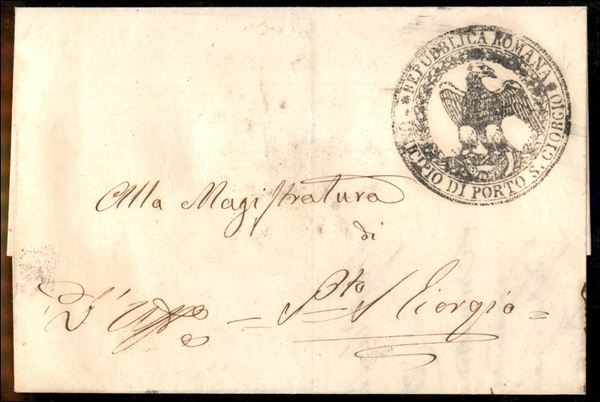 REPUBBLICA ROMANA
MUNICIPIO DI PORTO S. GIORGIO
Alla Magistratura
di
D'Uffo = Pto S Giorgio =